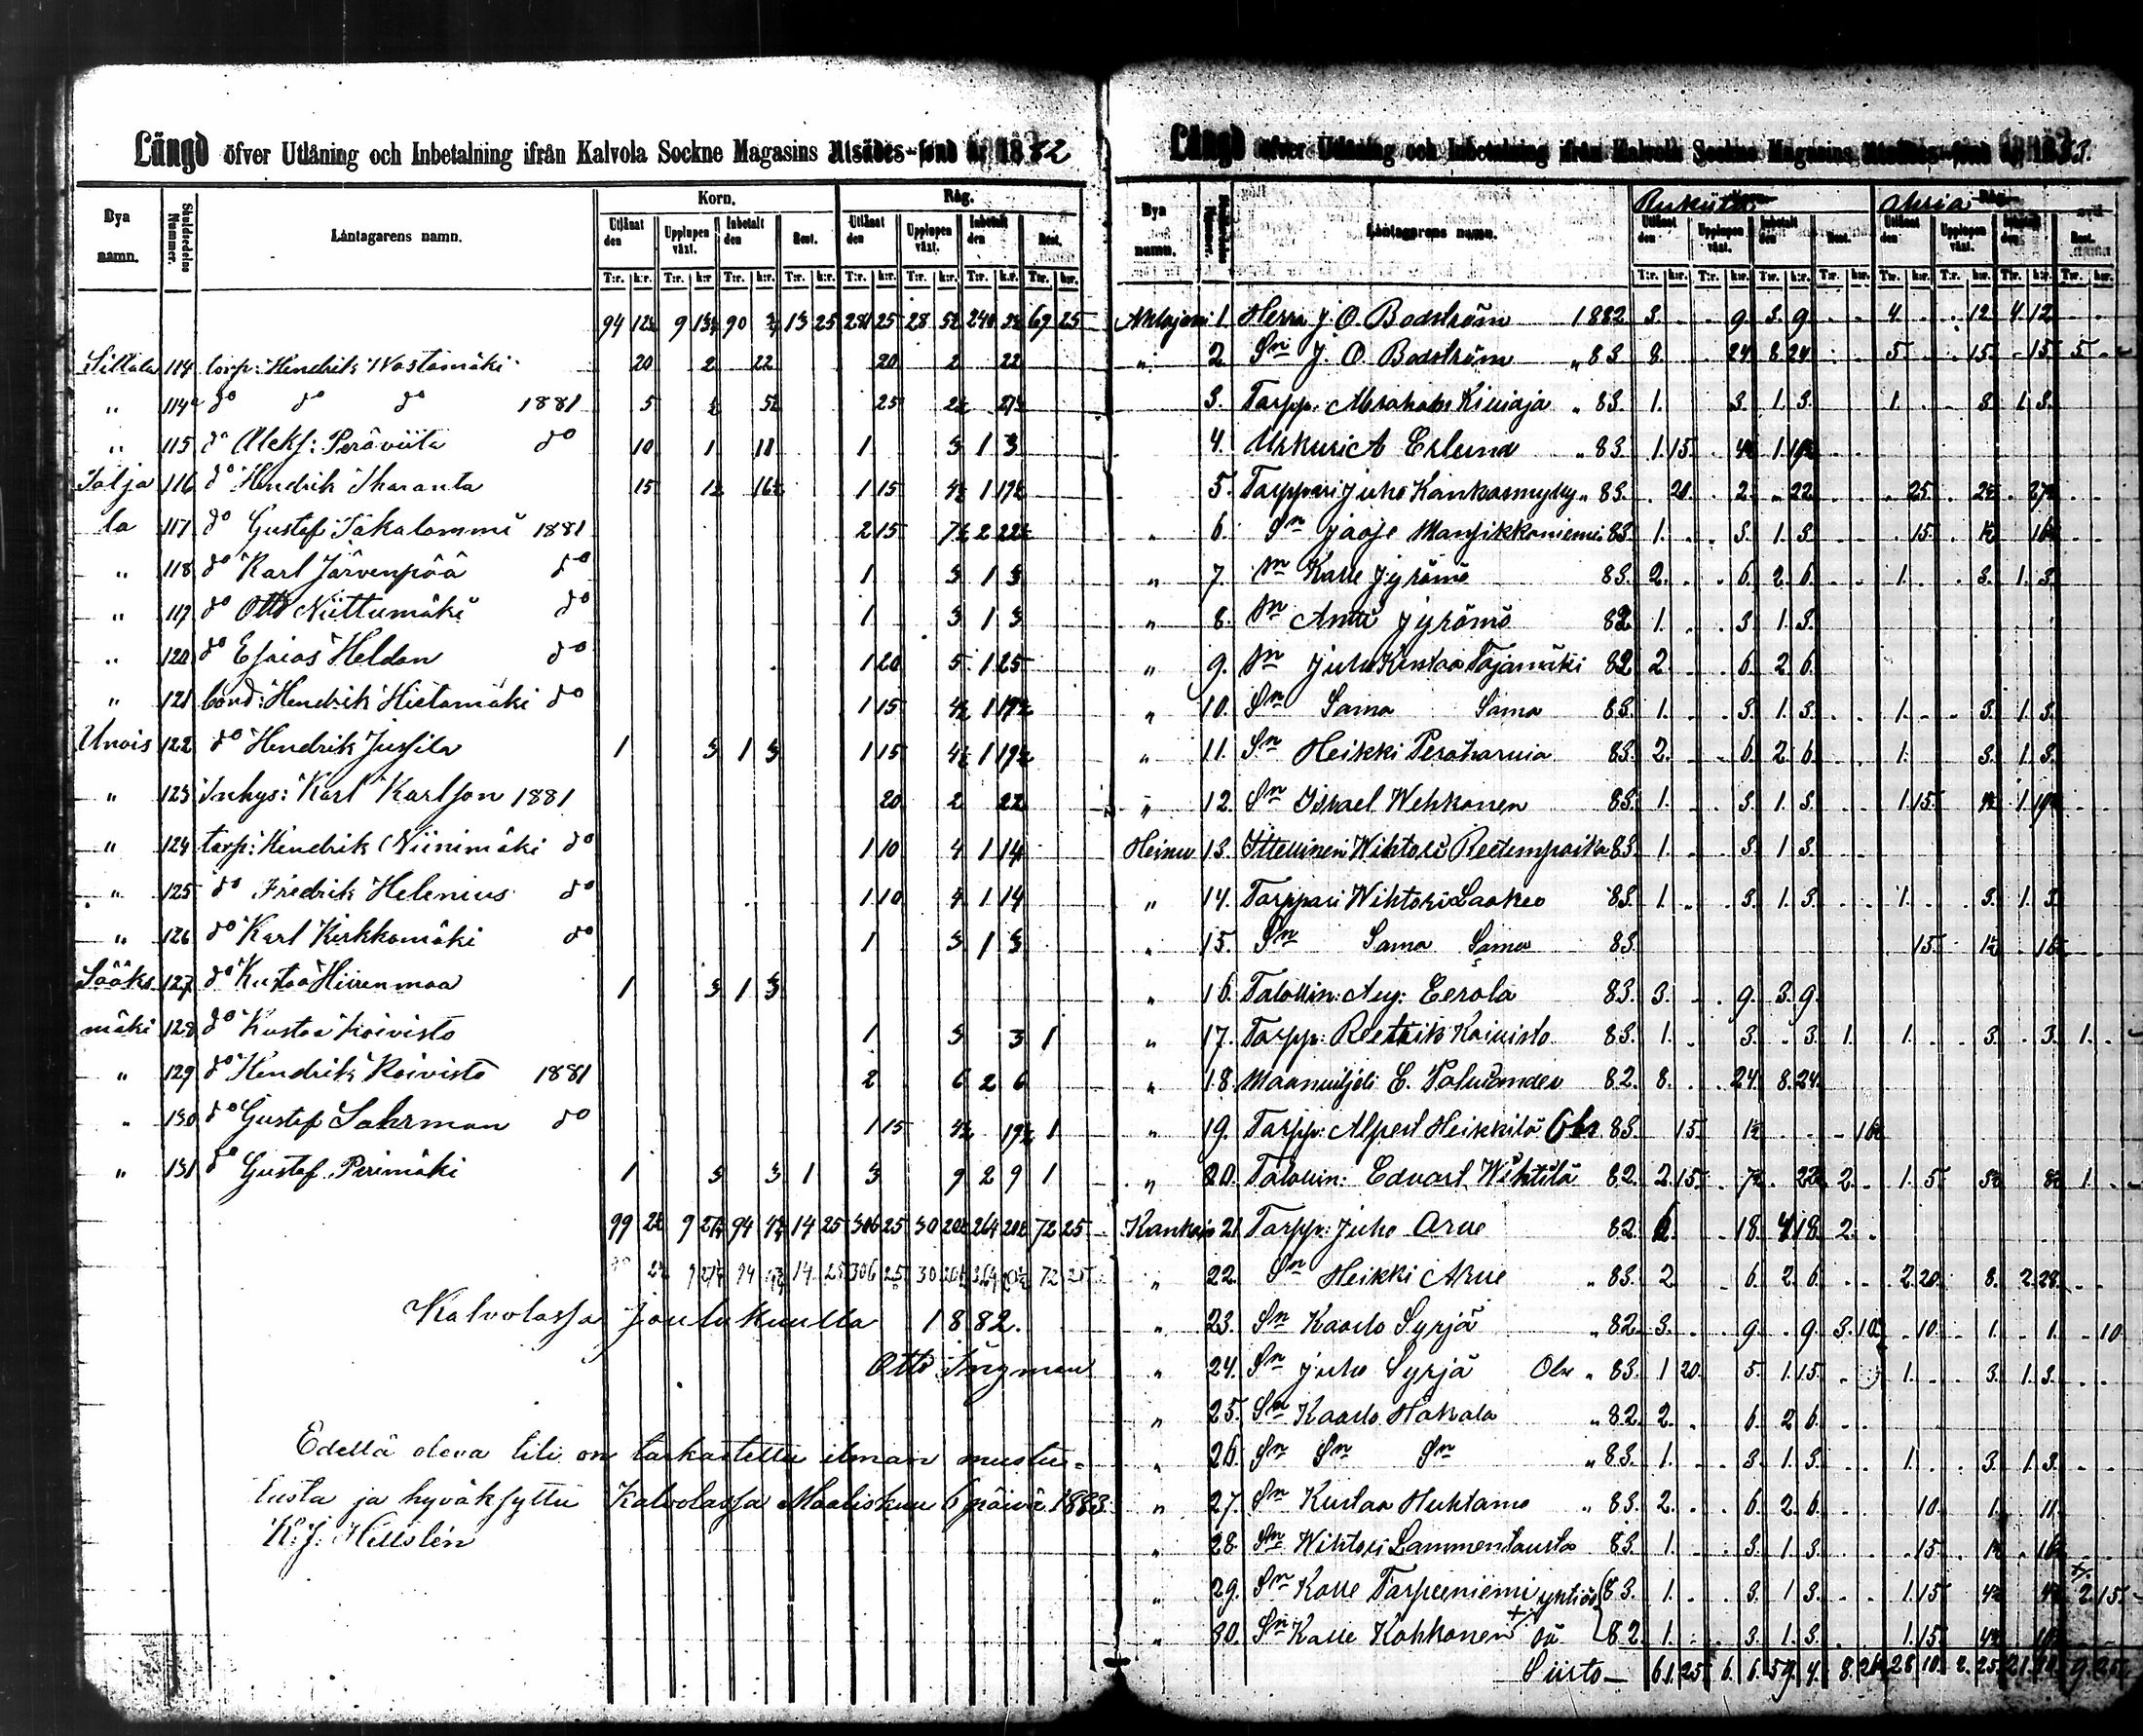 Längd öfver Utlåning och Inbetalning ifrån Kalvola Sockne Magasins Utsädes-fond år 1882
Bya namn. Skuldsedelns Nummer. Låntagarens namn. Korn. Råg.
Utlånat den Upplupen växt. Inbetalt den Rest. Utlånat den Upplupen växt. Inbetalt den Rest.
T:r. k:r. T:r. k:r T:r. k:r. T:r. k:r. T:r. k:r. T:r. k:r. T:r. k:r. T:r. k:r.
94 12½ 9 13½ 90 13 25 281 25 28 5½ 69 25
Sittala 114 torp: Hendrik Wastamäki 20 2 22 20 2 22
" 114a do do do 1881 5 ½ 5½ 25 2½ 27½
" 115 do Aleks: Peräviita do 10 1 11 1 3 1 3
Talja 116 do Hendrik Iharanta 15 1½ 16½ 1 15 4½ 1 19½
la 117 do Gustaf 1881 2 15 7½ 2 22½
" 118 do Karl Järvenpää do 1 3 1 3
" 119 do Otto Niittumäki do 1 3 1 3
" 120 do Esaias Heldan do 1 20 5 1 25
" 121 bond: Hendrik Hietamäki do 1 15 4½ 1 19½
Unois 122 do Hendrik Jussila 1 3 1 3 1 15 4½ 1 19½
" 123 Inhys: Karl Karlson 1881 20 2 22
" 124 torp: Hendrik Niinimäki do 1 10 4 1 14
" 125 do Fredrik Helenius do 1 10 4 1 14
" 126 do Karl Kirkkomäki do 1 3 1 3
Sääks 127 do Kustaa Hiirenmaa 1 3 1 3
mäki 128 do Kustaa Koivisto 1 3 3 1
" 129 do Hendrik Koivisto 1881 2 6 2 6
" 130 do Gustaf Sahrman do 1 15 4½ 19½ 1
" 131 do Gustaf Perimäki 1 3 3 1 3 9 2 9 1
99 2½ 9 27½ 94 4½ 14 25 306 25 30 20½ 264 20½ 72 25
2½ 9 27½ 94 4½ 14 25 306 25 30 20½ 264 20½ 72 25
Kalvolassa Joulukuulla 1882.
Otto Ingman
Edellä oleva tili on tarkastettu ilman muistu-
tusta ja hyväksytty Kalvolassa Maaliskuu 6 päivä 1883.
K. J. Hellslén
Längd öfver Utlåning och Inbetalning ifrån Kalvola Sockne Magasins Utsädes-fond år 1883.
Bya namn. Låntagarens namn. Rukiita Ohria
Utlånat den Upplupen växt. Inbetalt den Rest. Utlånat den Upplupen växt. Inbetalt den Rest.
T:r. k:r. T:r. k:r. T:r. k:r. T:r. k:r. T:r. k:r. T:r. k:r. T:r. k:r. T:r. k:r.
Ahlajärvi 1. Herra J. O. Bodström 1882 3. 9. 3. 9. 4. 12 4 12
" 2. Sn J. O. Bodström " 83 8. 24 8 24 5. 15. 15. 5
3. Tarpp. Abraham Kiiaja " 83. 1. 3. 1. 3. 1. 3. 1. 3.
4. Urkuri A Erlund " 83. 1. 15. 4½ 1. 19½
5. Tarppari Juho Kankasmyky " 83. 20. 2. 22. 25. 2½ 27½
" 6. Sn Jaase Mansikkaniemi 83. 1. 3. 1. 3. 15. 1½ 16½
" 7. Sn Kalle Jyrämö 83. 2. 6. 2. 6. 1. 3. 1. 3.
" 8. Sn Antti Jyrämö 82. 1. 3. 1. 3.
" 9. Sn Juho Kustaa Tajamäki 82. 2. 6. 2. 6.
" 10. Sn Sama Sama 83. 1. 3. 1. 3. 1. 3. 1. 3.
" 11. Sn Heikki Peräharuia 83. 2. 6. 2. 6. 1. 3. 1. 3.
" 12. Sn Israel Wehkonen 83. 1. 3. 1. 3. 1. 15. 4½ 1. 19½
Heinu 13. Ittellinen Wihtori Reetunpaika 83. 1. 3. 1. 3.
" 14. Tarppari Wihtori Laakeo 83. 1. 3. 1. 3. 1. 3. 1. 3.
" 15. Sn Sama Sama 83. 15. 1½ 16½
" 16. Talollin: Aug: Eerola 83. 3. 9. 3. 9.
" 17. Tarpp: Reetrik Koivisto 83. 1. 3. 3. 1. 1. 3. 3. 1.
" 18. Maanviljeli E. Palviander 82. 8. 24. 8. 24.
" 19. Tarpp: Alpert Heikkilä Ohr 83. 15. 1½ 16½
" 20. Talollin: Edvart Wihtilä 82. 2. 15. 7½ 22½ 2. 1. 5. 3½ 8½ 1.
Kankais 21. Tarpp: Juho Arue 82. 6. 18. 4 18 2.
" 22. Sn Heikki Arue " 83. 2 6. 2. 6. 2. 20. 8. 2. 28.
" 23. Sn Kaarlo Syrjä " 82. 3. 9. 9. 3. 10. 10. 1. 1. 10
" 24. Sn Juho Syrjä Ohr " 83. 1 20. 5. 1. 15. 1. 3. 1. 3.
" 25. Sn Kaarlo Hakala " 82. 2. 6. 2 6.
" 26. Sn Sn Sn " 83. 1. 3. 1. 3. 1. 3. 1. 3.
" 27. Sn Kustaa Huhtamo " 83. 2. 6. 2. 6. 10. 1. 11.
" 28. Sn Wihtori Lammentausta 83. 1. 3. 1. 3. 15. 1½ 16½
" 29. Sn Kalle Tarpeeniemi yhtiös 83. 1. 3. 1 3. 1. 15. 4½ 4½ 2. 15.
" 30. Sn Kalle Kohkonen sä 82. 1. 3. 1. 3. 1. 15. 4½
Siirto 61. 25. 6. 6. 59. 4. 8. 28 10 2. 25 21.